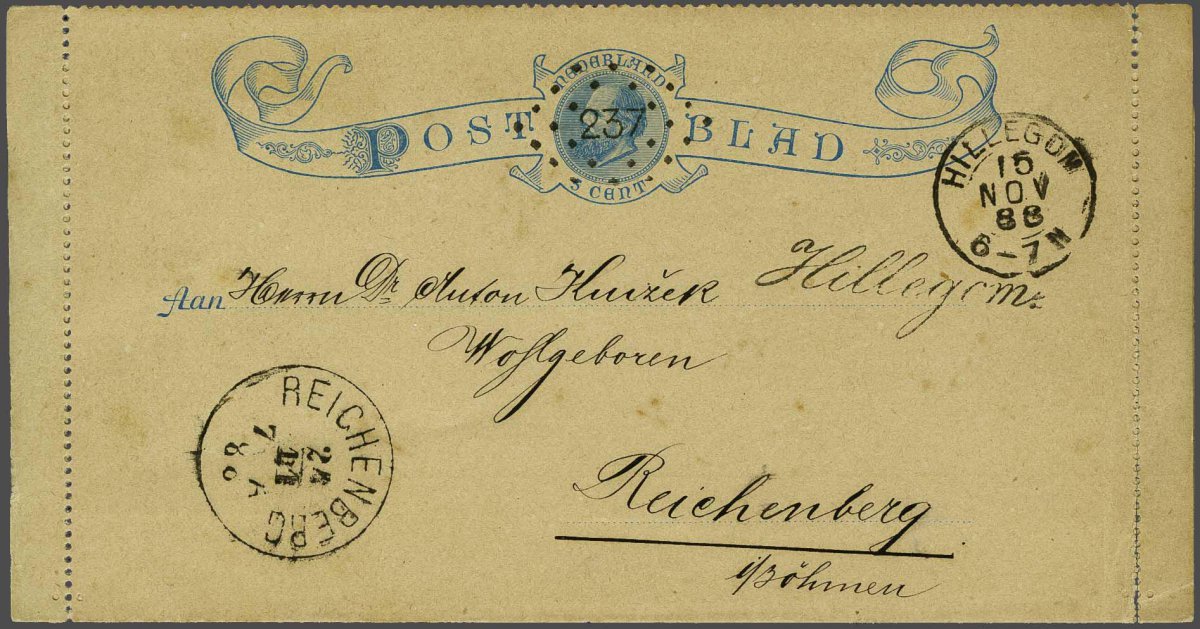 NEDERLAND
POSTBLAD
237
5 CENT
HILLEGOM
15
NOV
88
6-7N
Aan Herrn Dr Anton Knižek Hillegom.
Wohlgeboren
REICHENBERG
Reichenberg
i/Böhmen